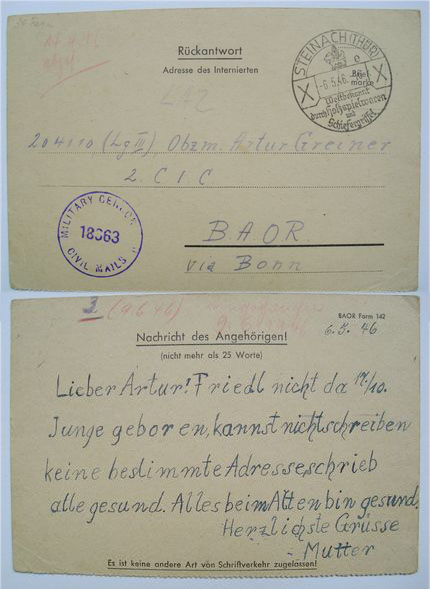 Rückantwort
Adresse des Internierten
STEINACH (THÜR)
e
-6.5.46.
Brief
marke
Weltbekannt
durch Holzspielwaren
und
Schiefergriffel
LAZ
204110 (Lg III) Obzm. Artur Greiner
2. C I C
MILITARY CENSOR
18063
CIVIL MAILS
B.A.O.R.
via Bonn
(9.6.46)
BAOR Form 142
6.5.46
Nachricht des Angehörigen!
(nicht mehr als 25 Worte)
Lieber Artur! Friedl nicht da 17/10.
Junge geboren, kannst nicht schreiben
keine bestimmte Adresse, schrieb
alle gesund. Alles beim Alten bin gesund.
Herzlichste Grüsse
- Mutter
Es ist keine andere Art von Schriftverkehr zugelassen!